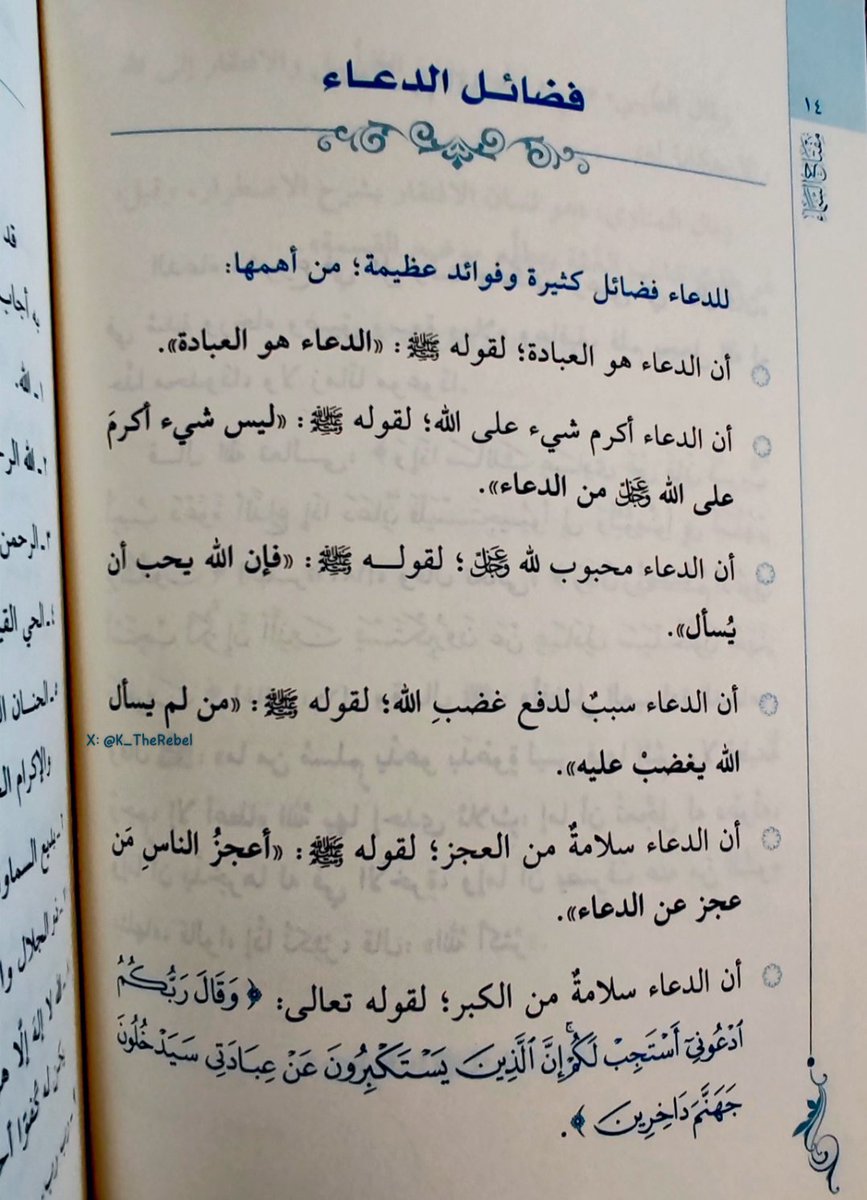 ١٤
مفتاح السماء
فضائل الدعاء
للدعاء فضائل كثيرة وفوائد عظيمة؛ من أهمها:
أن الدعاء هو العبادة؛ لقوله ﷺ: «الدعاء هو العبادة».
أن الدعاء أكرم شيء على الله؛ لقوله ﷺ: «ليس شيء أكرمَ
على الله عَزَّ وَجَلَّ من الدعاء».
أن الدعاء محبوب لله عَزَّ وَجَلَّ؛ لقولـــه ﷺ: «فإن الله يحب أن
يُسأل».
أن الدعاء سببٌ لدفع غضبِ الله؛ لقوله ﷺ: «من لم يسأل
X: @K_TheRebel
الله يغضبْ عليه».
أن الدعاء سلامةٌ من العجز؛ لقوله ﷺ: «أعجزُ الناسِ مَن
عجز عن الدعاء».
أن الدعاء سلامةٌ من الكبر؛ لقوله تعالى: ﴿وَقَالَ رَبُّكُمُ
ٱدْعُونِيٓ أَسْتَجِبْ لَكُمْۚ إِنَّ ٱلَّذِينَ يَسْتَكْبِرُونَ عَنْ عِبَادَتِي سَيَدْخُلُونَ
جَهَنَّمَ دَاخِرِينَ﴾.
قد
به أجاب
١ـ الله.
٢ـ الله الر
٣ـ الرحمن
٤ـ الحي القي
٥ـ الحنـان ال
والإكرام ال
٦ـ بديع السماو